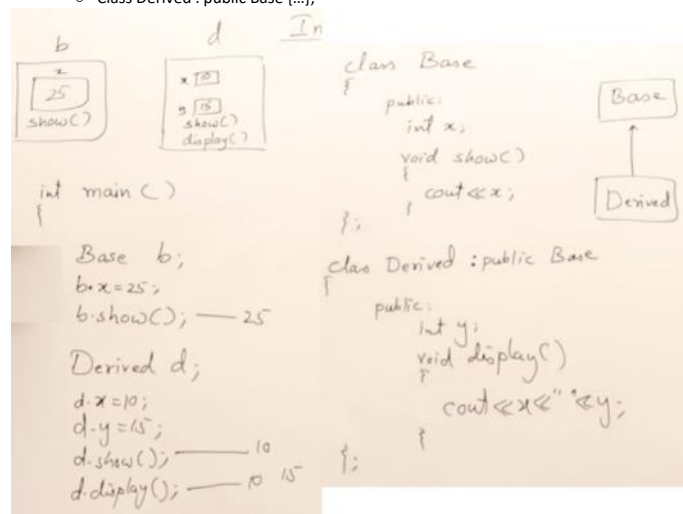 Class Derived : public Base {…};
b
x
25
show()
d
x 10
y 15
show()
display()
In
int main()
{
Base b;
b.x=25;
b.show(); — 25
Derived d;
d.x=10;
d.y=15;
d.show(); — 10
d.display(); — 10 15
class Base
{
public:
int x;
void show()
{
cout<<x;
}
};
Base
Derived
clas Derived : public Base
{
public:
int y;
void display()
{
cout<<x<<" "<<y;
}
};